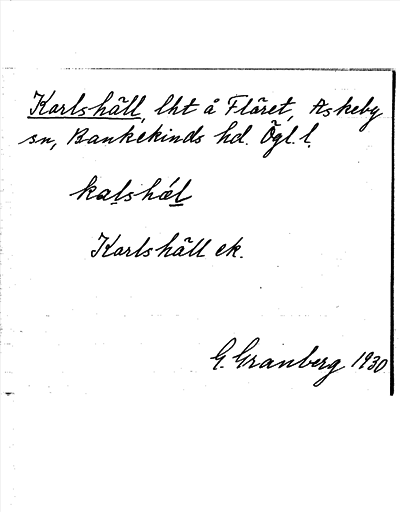 Karlshäll, lht å Flåret, Askeby
sn, Bankekinds hd. Ögl. l.
kalshǽl
Karlshäll ek.
G. Granberg 1930